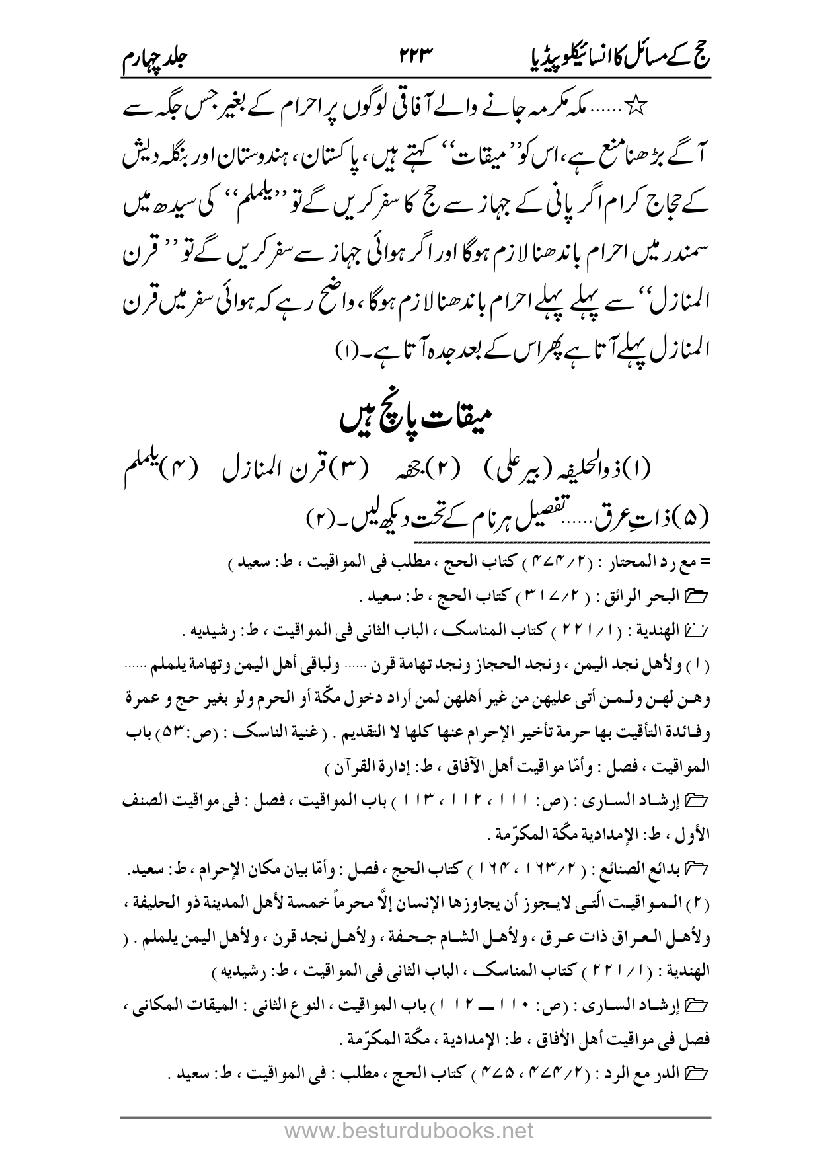 حج کے مسائل کا انسائیکلوپیڈیا ۲۲۳ جلد چہارم
☆...... مکہ مکرمہ جانے والے آفاقی لوگوں پر احرام کے بغیر جس جگہ سے
آگے بڑھنا منع ہے، اس کو ’’میقات‘‘ کہتے ہیں، پاکستان، ہندوستان اور بنگلہ دیش
کے حجاج کرام اگر پانی کے جہاز سے حج کا سفر کریں گے تو ’’یلملم‘‘ کی سیدھ میں
سمندر میں احرام باندھنا لازم ہوگا اور اگر ہوائی جہاز سے سفر کریں گے تو ’’قرن
المنازل‘‘ سے پہلے پہلے احرام باندھنا لازم ہوگا، واضح رہے کہ ہوائی سفر میں قرن
المنازل پہلے آتا ہے پھر اس کے بعد جدہ آتا ہے۔(۱)
میقات پانچ ہیں
(۱) ذوالحلیفہ (بیر علی) (۲) جحفہ (۳) قرن المنازل (۴) یلملم
(۵) ذات عرق...... تفصیل ہر نام کے تحت دیکھ لیں۔(۲)
= مع رد المحتار : (۲/۴۷۴) کتاب الحج ، مطلب فی المواقیت ، ط: سعید )
البحر الرائق : (۲/۳۱۷) کتاب الحج ، ط: سعید .
الهندیة : (۱/۲۲۱) کتاب المناسک ، الباب الثانی فی المواقیت ، ط: رشیدیه .
(۱) ولأهل نجد الیمن ، ونجد الحجاز ونجد تهامة قرن ...... ولباقی أهل الیمن وتهامة یلملم ......
وهن لهن ولـمـن أتی علیهن من غیر أهلهن لمن أراد دخول مكّة أو الحرم ولو بغیر حج و عمرة
وفـائدة التأقیت بها حرمة تأخیر الإحرام عنها کلها لا التقدیم . ( غنیة الناسک : (ص:۵۳) باب
المواقیت ، فصل : وأمّا مواقیت أهل الآفاق ، ط: إدارة القرآن )
إرشـاد السـاری : (ص: ۱۱۱ ، ۱۱۲ ، ۱۱۳) باب المواقیت ، فصل : فی مواقیت الصنف
الأول ، ط: الإمدادیة مكّة المکرّمة .
بدائع الصنائع : (۲/۱۶۳ ، ۱۶۴) کتاب الحج ، فصل : وأمّا بیان مکان الإحرام ، ط: سعید.
(۲) الـمـواقیـت الّتـی لایـجوز أن یجاوزها الإنسان إلّا محرماً خمسة لأهل المدینة ذو الحلیفة ،
ولأهـل الـعـراق ذات عـرق ، ولأهـل الشـام جـحـفة ، ولأهـل نجد قرن ، ولأهل الیمن یلملم . (
الهندیة : (۱/۲۲۱) کتاب المناسک ، الباب الثانی فی المواقیت ، ط: رشیدیه )
إرشـاد السـاری : (ص: ۱۱۰ ــ ۱۱۲) باب المواقیت ، النوع الثانی : المیقات المکانی ،
فصل فی مواقیت أهل الأفاق ، ط: الإمدادیة ، مكّة المکرّمة .
الدر مع الرد : (۲/۴۷۴ ، ۴۷۵) کتاب الحج ، مطلب : فی المواقیت ، ط: سعید .
www.besturdubooks.net